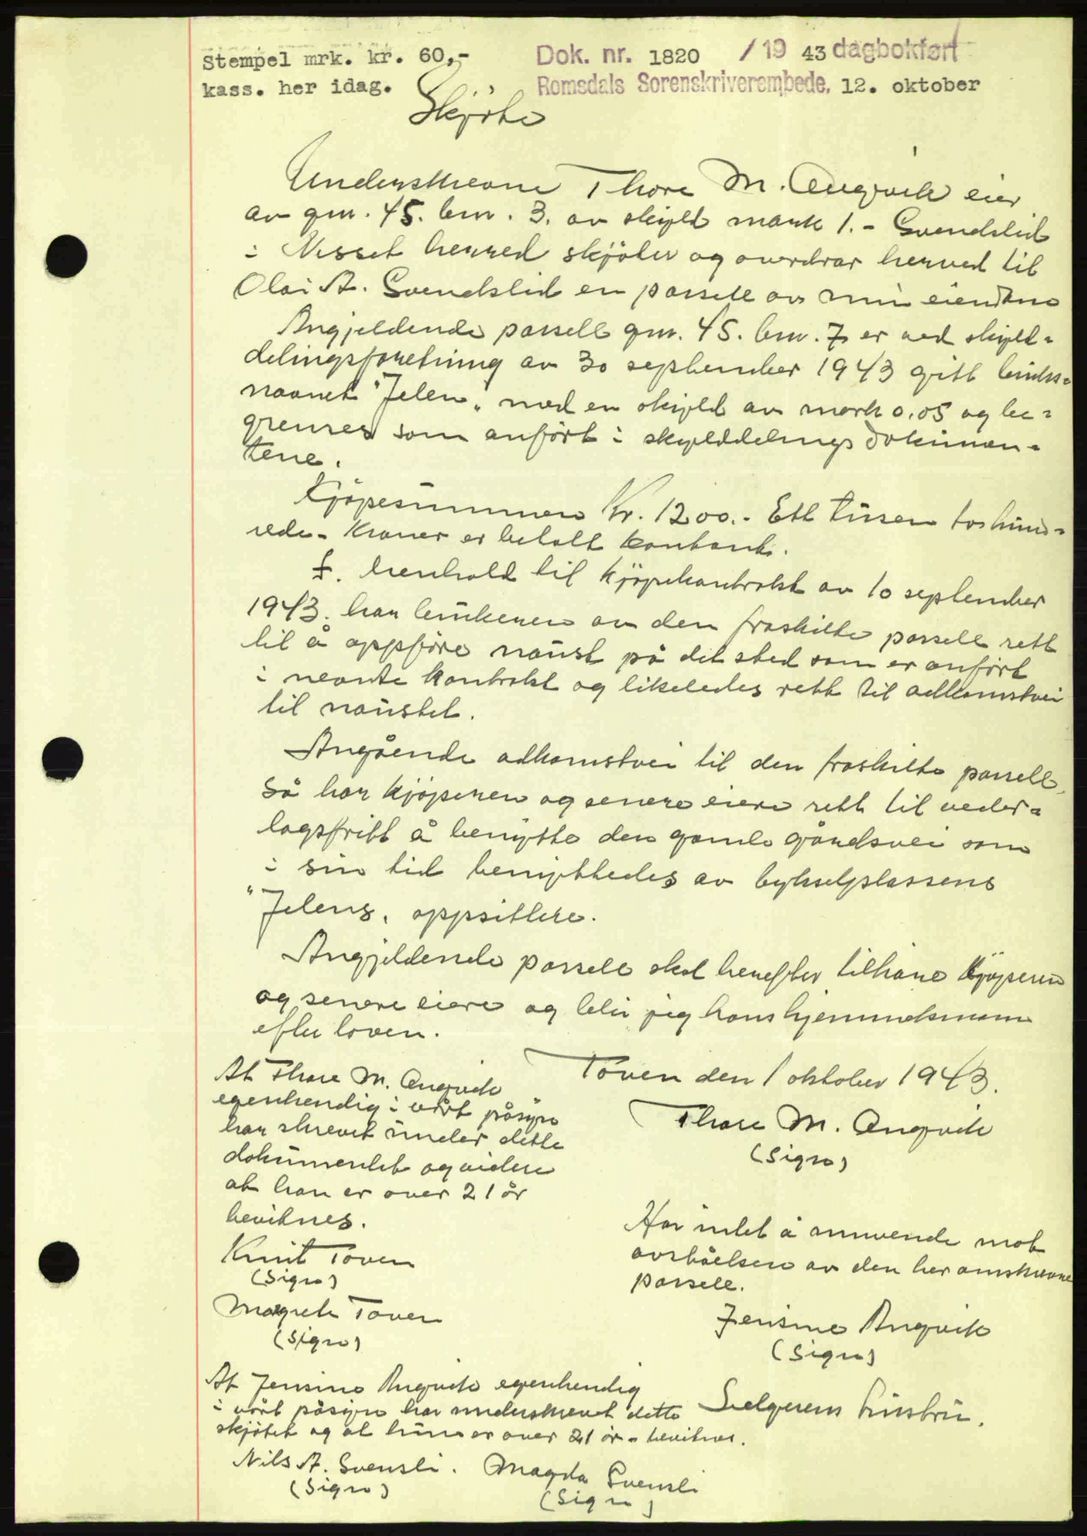 Stempel mrk. kr. 60,- Dok. nr. 1820 /19 43 dagbokført
kass. her idag. Romsdals Sorenskriverembede, 12. oktober
Skjöte
Underskrevne Thore M. Angvik eier
av gnr. 45. bnr. 3. av skyld mark 1.- Svendslid
i Nesset herred skjöter og overdrar herved til
Olai A. Svendslid en parsell av min eiendom
Angjeldende parsell gnr. 45. bnr. 7 er ved skyld=
delingsforretning av 30 september 1943 gitt bruks=
navnet "Jelen" med en skyld av mark 0.05 og be=
grenses som anfört i skylddelings dokumen=
tene.
Kjöpesummen Kr. 1200.- Ett tusen tohund=
rede- Kroner er betalt kontant.
I henhold til kjöpekontrakt av 10 september
1943. har brukeren av den fraskilte parsell rett
til å oppföre naust på det sted som er anfört
i nevnte kontrakt og likeledes rett til adkomstvei
til naustet.
Angående adkomstvei til den fraskilte parsell,
så har kjöperen og senere eiere rett til veder=
lagsfritt å benytte den gamle gårdsvei som
i sin tid benyttedes av bykselplassens
"Jelens" oppsittere.
Angjeldende parsell skal herefter tilhöre Kjöperen
og senere eiere og blir jeg hans hjemmelsmann
efter loven.
Toven den 1 oktober 1943.
Thore M. Angvik
(sign)
At Thore M. Angvik
egenhendig i vårt påsyn
har skrevet under dette
dokumentet og videre
at han er over 21 år
bevitnes.
Knut Toven
(sign)
Magrete Toven
(sign)
Har intet å innvende mot
avståelsen av den her omskrevne
parsell.
Jensine Angvik
(sign)
Selgerens hustru.
At Jensine Angvik egenhendig
i vårt påsyn har underskrevet dette
skjötet og at hun er over 21 år - bevitnes.
Nils A. Svensli. Magda Svensli
(sign) (sign)